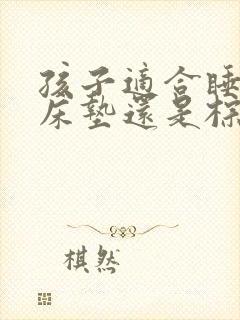 孩子適合睡
床墊還是棕
棋然